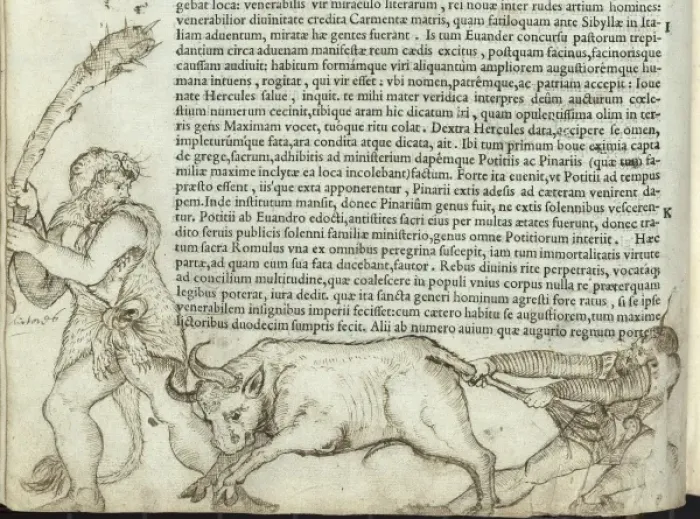 gebat loca: venerabilis vir miraculo literarum, rei nouæ inter rudes artium homines:
venerabilior diuinitate credita Carmentæ matris, quam fatiloquam ante Sibyllæ in Ita-
liam aduentum, miratæ hæ gentes fuerant. Is tum Euander concursu pastorum trepi-
I
dantium circa aduenam manifestæ reum cædis excitus, postquam facinus, facinorisque
caussam audiuit: habitum formámque viri aliquantum ampliorem augustiorémque hu-
mana intuens, rogitat, qui vir esset: vbi nomen, patrémque, ac patriam accepit: Ioue
nate Hercules salue, inquit. te mihi mater veridica interpres deûm aucturum cœle-
stium numerum cecinit, tibique aram hic dicatum iri, quam opulentissima olim in ter-
ris gens Maximam vocet, tuóque ritu colat. Dextra Hercules data, accipere se omen,
impleturúmque fata, ara condita atque dicata, ait. Ibi tum primum boue eximia capta
de grege, sacrum, adhibitis ad ministerium dapémque Potitiis ac Pinariis (quæ tum fa-
miliæ maxime inclytæ ea loca incolebant) factum. Forte ita euenit, vt Potitii ad tempus
præsto essent, iisque exta apponerentur, Pinarii extis adesis ad cæteram venirent da-
pem. Inde institutum mansit, donec Pinariûm genus fuit, ne extis solennibus vesceren-
K
tur. Potitii ab Euandro edocti, antistites sacri eius per multas ætates fuerunt, donec tra-
dito seruis publicis solenni familiæ ministerio, genus omne Potitiorum interiit. Hæc
tum sacra Romulus vna ex omnibus peregrina suscepit, iam tum immortalitatis virtute
partæ, ad quam eum sua fata ducebant, fautor. Rebus diuinis rite perpetratis, vocataque
ad concilium multitudine, quæ coalescere in populi vnius corpus nulla re præterquam
legibus poterat, iura dedit. quæ ita sancta generi hominum agresti fore ratus, si se ipse
venerabilem insignibus imperii fecisset: cum cætero habitu se augustiorem, tum maxime
lictoribus duodecim sumptis fecit. Alii ab numero auium quæ augurio regnum